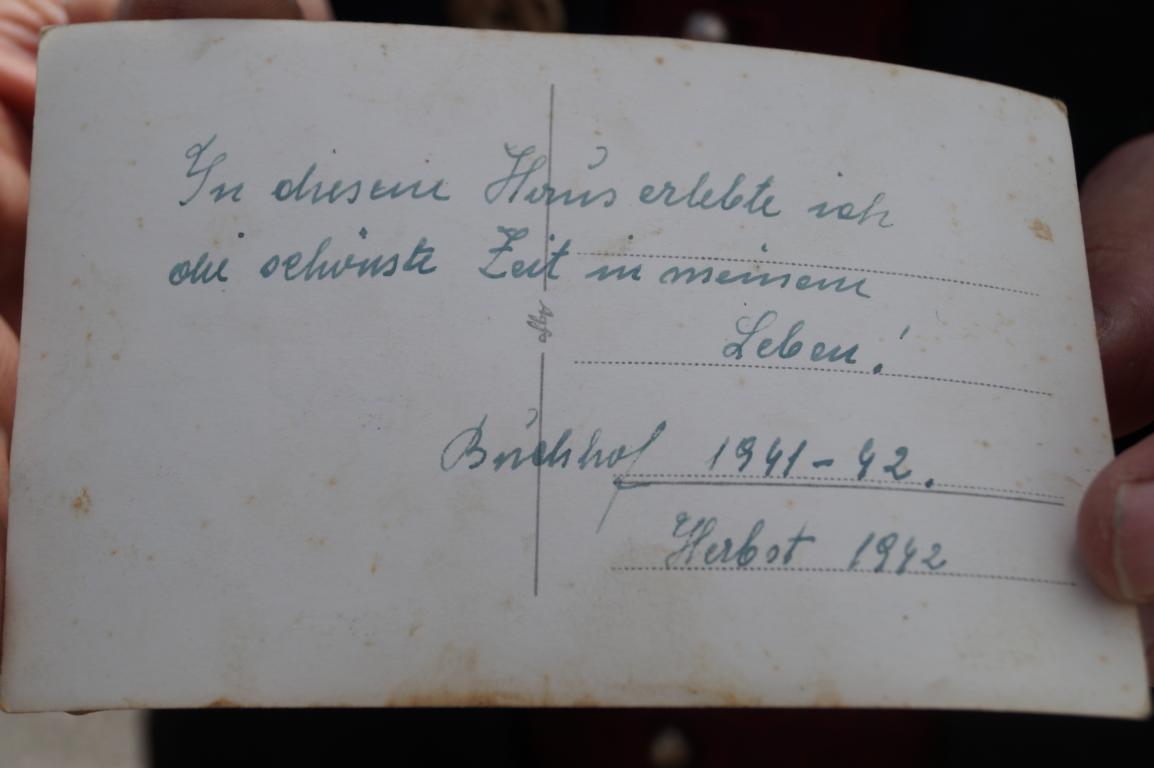 In diesem Haus erlebte ich
die schönste Zeit in meinem
Leben!
Buchhof 1941-42.
Herbst 1942